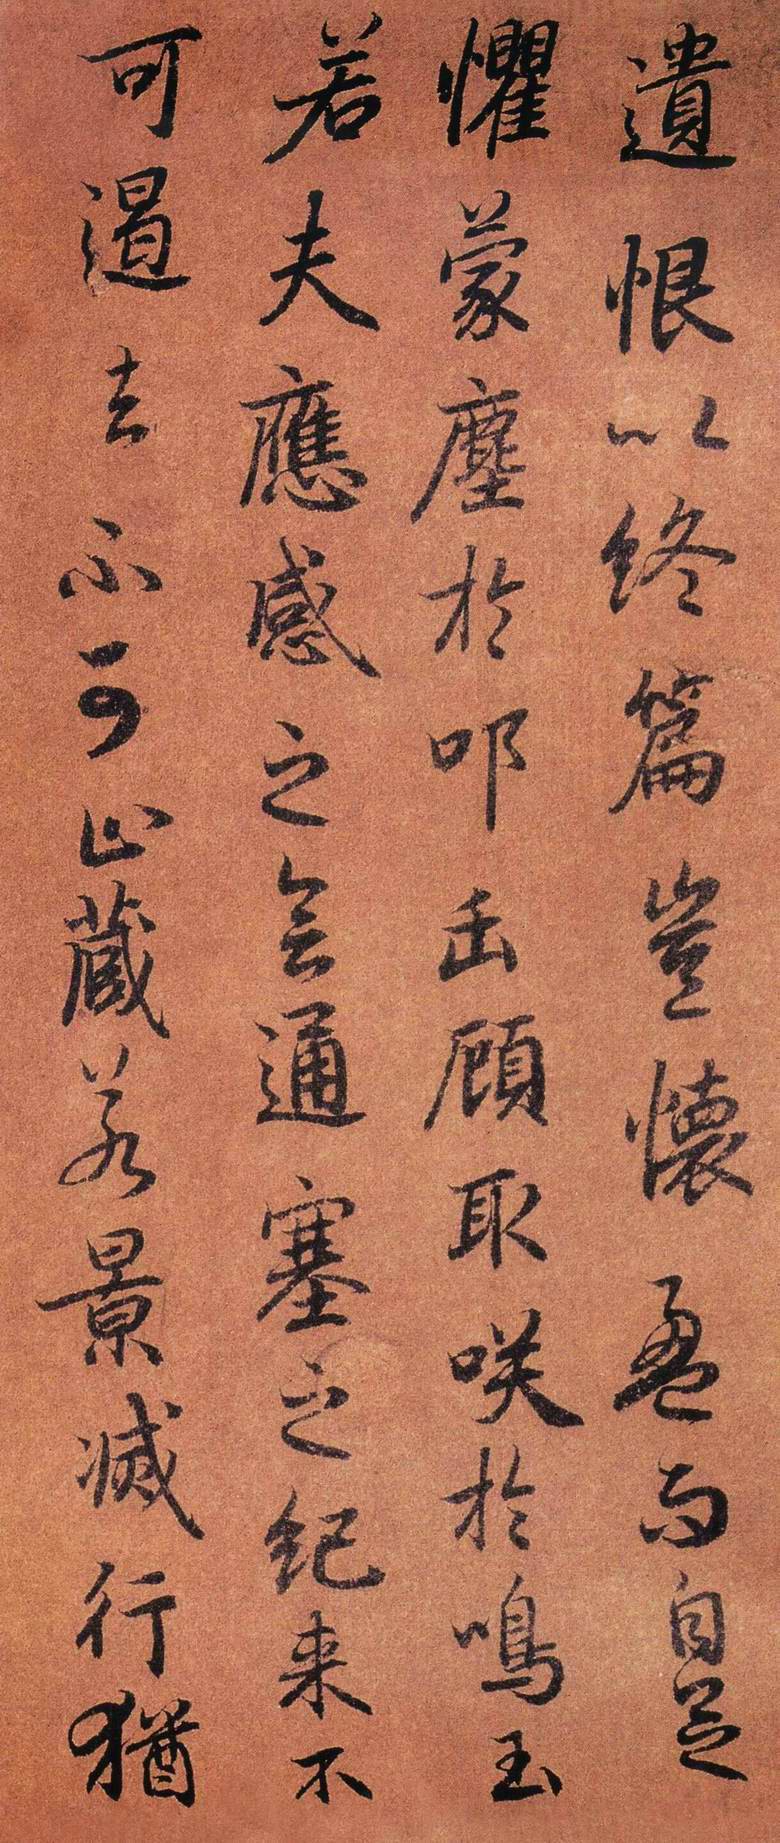 遺恨以終篇豈懷盈而自足
懼蒙塵於叩缶顧取咲於鳴玉
若夫應感之會通塞之紀来不
可遏去不可止藏若景滅行猶